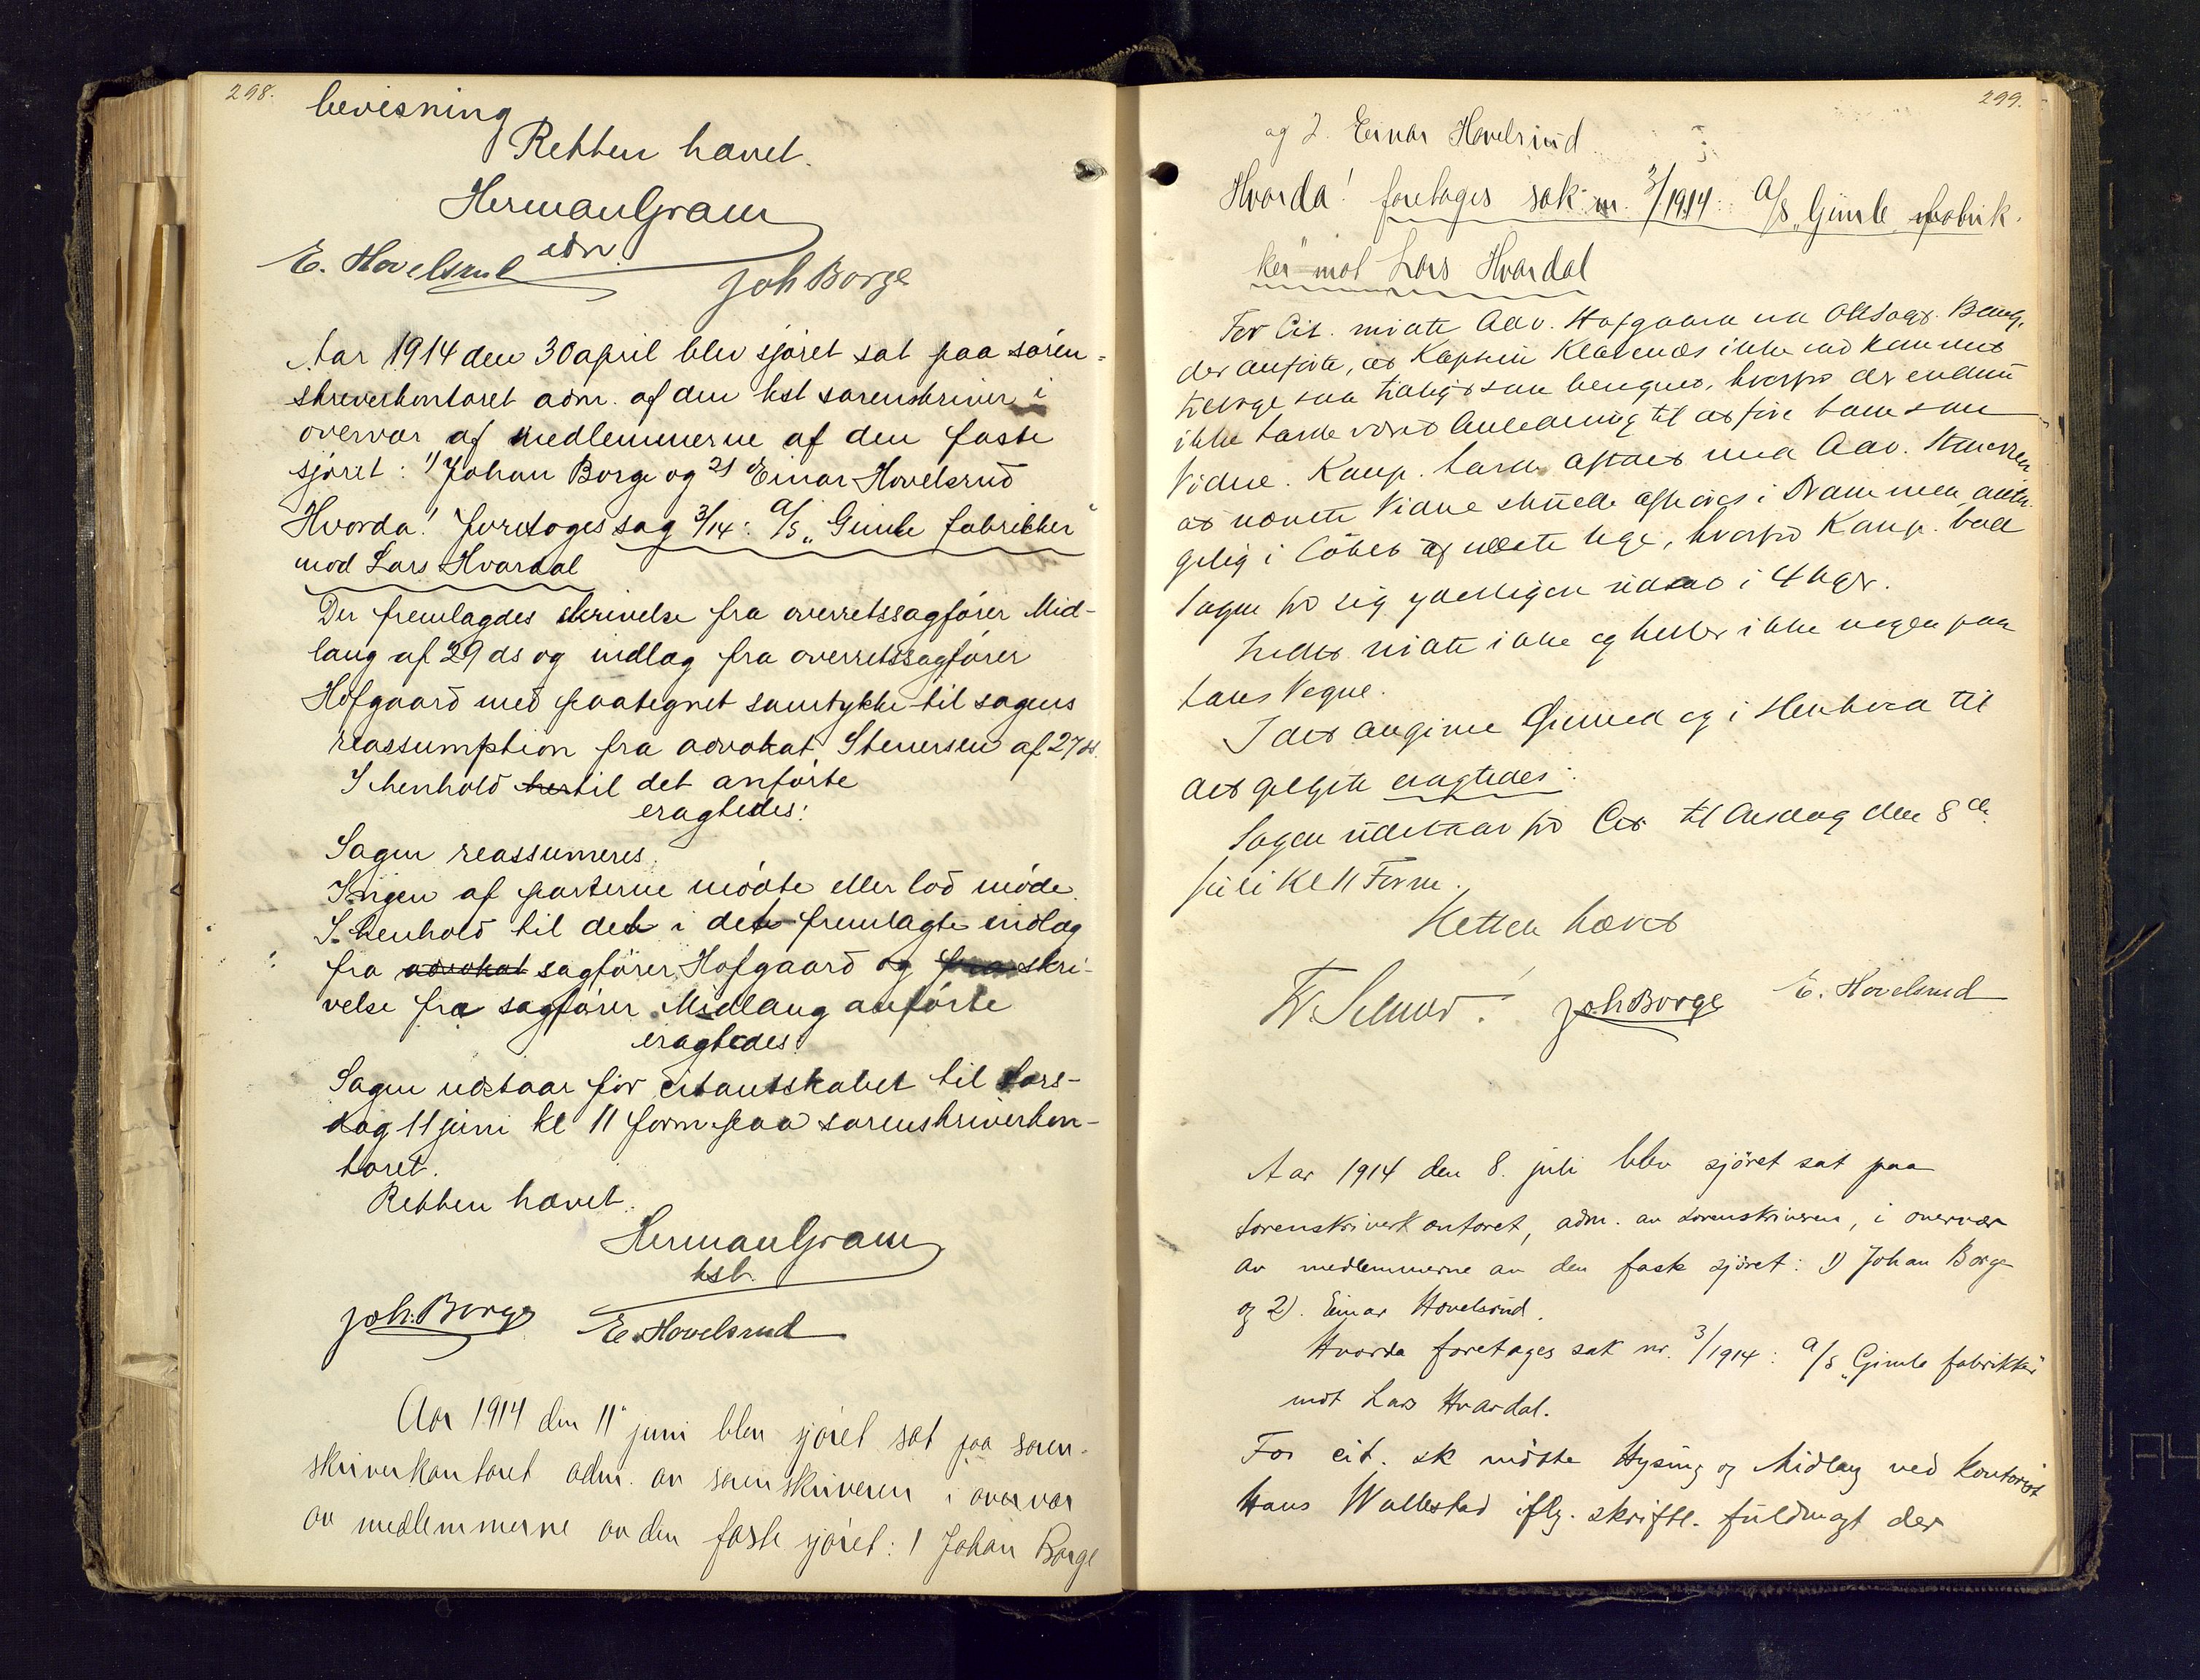 298.
bevisning
Retten hævet.
Herman Gram
edv.
E. Hovelsrud
Joh Borge
Aar 1914 den 30 april blev sjøret sat paa soren-
skriverkontoret adm. af den kst sorenskriver i
overvær af medlemmerne af den faste
sjøret: 1) Johan Borge og 2) Einar Hovelsrud
Hvorda! foretoges sag 3/14: A/S „Gimle fabrikker"
mod Lars Hvardal
Der fremlagdes skrivelse fra overretssagfører Mid-
laug af 29 ds og indlæg fra overretssagfører
Hofgaard med paategnet samtykke til sagens
reassumption fra advokat Stenersen af 27 ds.
I henhold hertil det anførte
eragtedes:
Sagen reassumeres.
Ingen af parterne mødte eller lod møde.
I henhold til det i det fremlagte indlæg
fra advokat sagfører Hofgaard og fra skri-
velse fra sagfører Midlaug anførte
eragtedes:
Sagen udstaar for citantskabet til tors-
dag 11 juni kl 11 form. paa sorenskriverkon-
toret.
Retten hævet.
Herman Gram
kst.
Joh: Borge
E. Hovelsrud
Aar 1914 den 11te juni blev sjøret sat paa soren-
skriverkontoret adm. av sorenskriveren i overvær
av medlemmerne av den faste sjøret: 1 Johan Borge
299.
og 2. Einar Hovelsrud
Hvorda! foretoges sak nr. 3/1914: A/S „Gimle fabrik-
ker" mot Lars Hvardal
For Cit. mødte Adv. Hofgaard ved ORsagf.
der anførte, at Kaptein Klavenæs ikke var kommet
tilbage saa tidlig som beregnet, hvorfor der endnu
ikke havde været Anledning til at føre ham som
Vidne. Komp. havde aftalt med Adv. Stenersen
at nævnte Vidne skulde afhøres i Drammen
i Løbet af næste Uge, hvorfor Komp. bad
Sagen for sig yderligere udsat i 4 Uger.
Indst. mødte ikke og heller ikke nogen paa
hans Vegne.
I det angivne Øiemed og i Henhold til
det oplyste eragtedes:
Sagen udstaar for Cit til Onsdag den 8de
juli Kl 11 Form.
Retten hævet
Joh Borge
E. Hovelsrud
Aar 1914 den 8. juli blev sjöret sat paa
Sorenskriverkontoret, adm. av sorenskriveren, i overvær
av medlemmerne av den faste sjöret: 1) Johan Borge
og 2). Einar Hovelsrud.
Hvorda foretoges sak nr. 3/1914: A/S „Gimle fabrikker"
mot Lars Hvardal.
For cit. sk mødte Hysing og Midlaug ved kontorist
Hans Wallestad iflg. skriftl. fuldmagt der